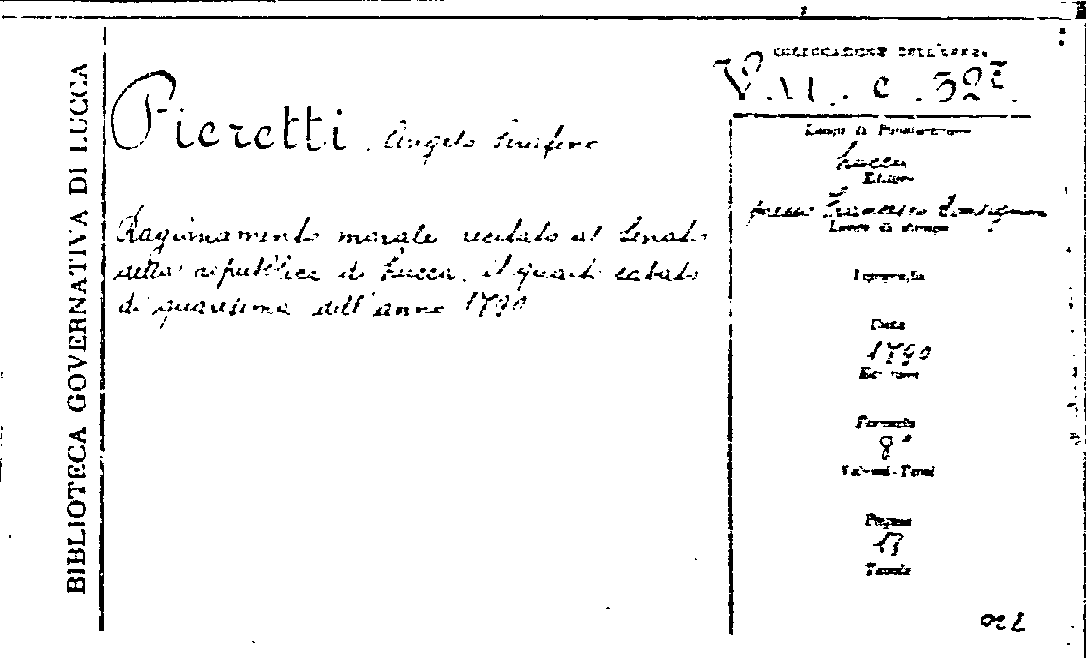 BIBLIOTECA GOVERNATIVA DI LUCCA
Pieretti, Angelo Serafino
Ragionamento morale recitato al Senato
della repubblica di Lucca, il quarto sabato
di quaresima dell'anno 1790
COLLOCAZIONE DELL'OPERA
V. VI. c. 32
Luogo di Pubblicazione
Lucca
Editore
presso Francesco Bonsignori
Luogo di stampa
Tipografia
Data
1790
Edizione
Formato
8°
Volumi - Tomi
Pagine
17
Tavole